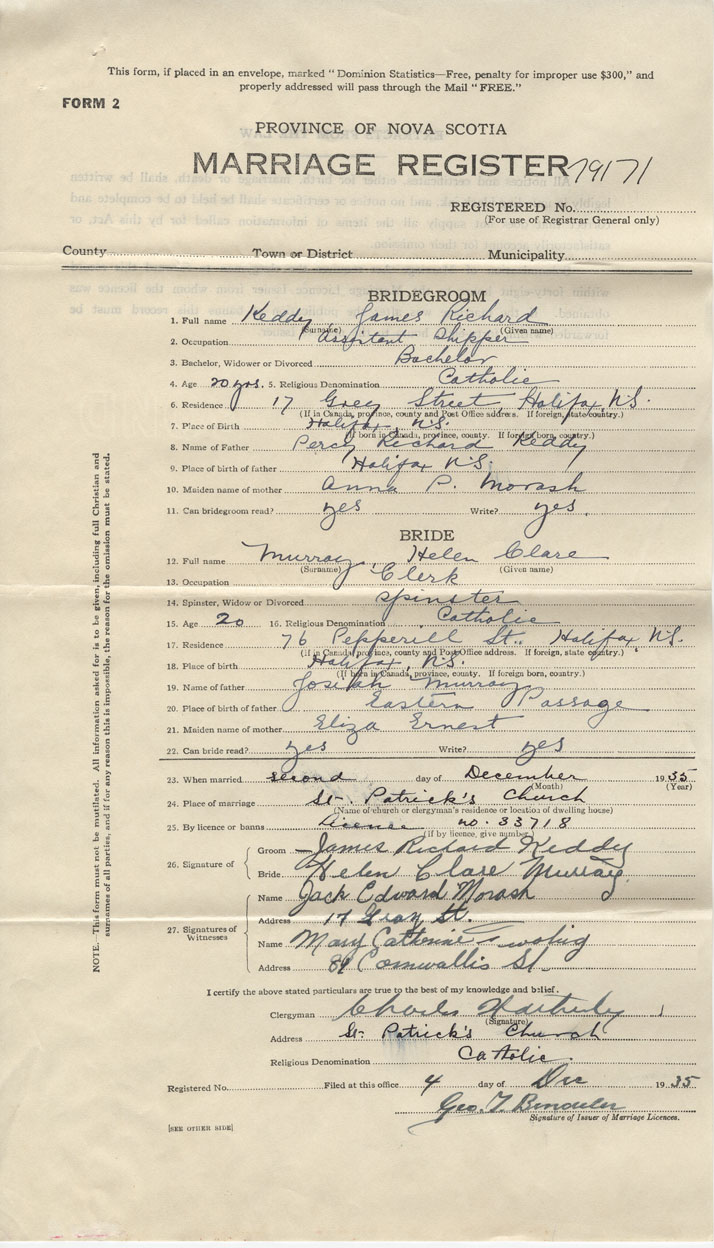 This form, if placed in an envelope, marked "Dominion Statistics—Free, penalty for improper use $300," and
properly addressed will pass through the Mail "FREE."
FORM 2
PROVINCE OF NOVA SCOTIA
MARRIAGE REGISTER 79171
REGISTERED No.
(For use of Registrar General only)
County Town or District Municipality
BRIDEGROOM
1. Full name Keddy James Richard
(Surname) (Given name)
2. Occupation Assistant Shipper
3. Bachelor, Widower or Divorced Bachelor
4. Age 20 yrs. 5. Religious Denomination Catholic
6. Residence 17 Grey Street Halifax, N.S.
(If in Canada, province, county and Post Office address. If foreign, state country.)
7. Place of Birth Halifax, N.S.
(If born in Canada, province, county. If foreign born, country.)
8. Name of Father Percy Richard Keddy
9. Place of birth of father Halifax N.S.
10. Maiden name of mother Anna P. Morash
11. Can bridegroom read? yes Write? yes.
BRIDE
12. Full name Murray, Helen Clare
(Surname) (Given name)
13. Occupation Clerk
14. Spinster, Widow or Divorced spinster
15. Age 20 16. Religious Denomination Catholic
17. Residence 76 Pepperill St., Halifax, N.S.
(If in Canada, province, county and Post Office address. If foreign, state country.)
18. Place of birth Halifax, N.S.
(If born in Canada, province, county. If foreign born, country.)
19. Name of father Joseph Murray
20. Place of birth of father Eastern Passage
21. Maiden name of mother Eliza Ernest
22. Can bride read? yes Write? yes
23. When married second day of December 1935
(Month) (Year)
24. Place of marriage St. Patrick's Church
(Name of church or clergyman's residence or location of dwelling house)
25. By licence or banns Licence no. 33718
(if by licence, give number)
26. Signature of
Groom James Richard Keddy
Bride Helen Clare Murray
27. Signatures of Witnesses
Name Jack Edward Morash
Address 17 Gray St.
Name Mary Catherine
Address 89 Cornwallis St.
I certify the above stated particulars are true to the best of my knowledge and belief.
Clergyman Charles
(Signature)
Address St. Patrick's Church
Religious Denomination Catholic.
Registered No. Filed at this office 4 day of Dec 1935
Geo. T.
Signature of Issuer of Marriage Licences.
[SEE OTHER SIDE]
NOTE.—This form must not be mutilated. All information asked for is to be given, including full Christian and
surnames of all parties, and if for any reason this is impossible, the reason for the omission must be stated.